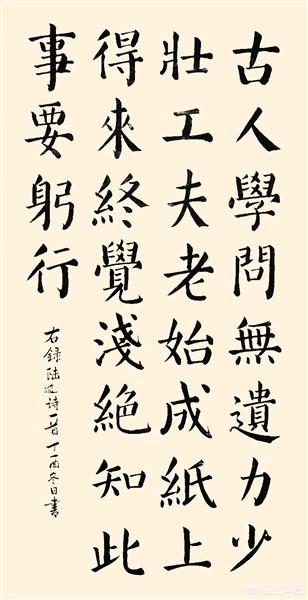 古人學問無遺力少
壯工夫老始成紙上
得來終覺淺絕知此
事要躬行
右錄陆游詩一首丁酉冬日書